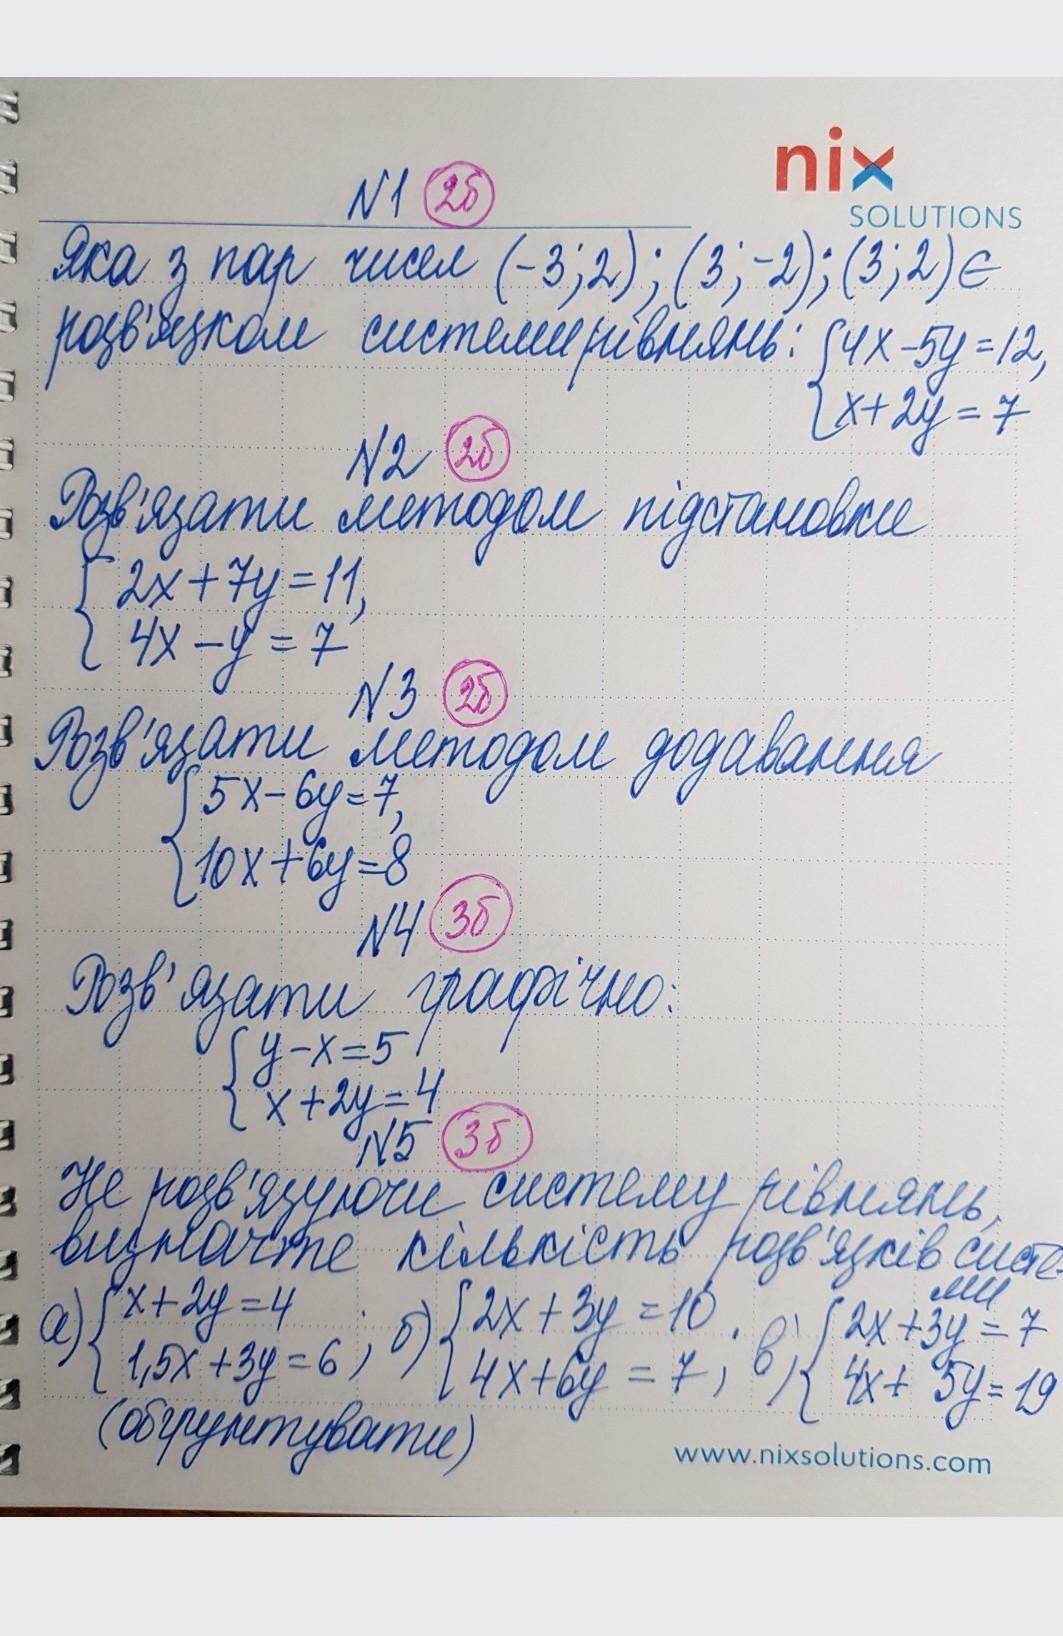 nix
SOLUTIONS
N1 2б
Яка з пар чисел (-3;2); (3;-2); (3;2) є
розв'язком системи рівнянь: { 4x-5y=12,
x+2y=7
N2 2б
Розв'язати методом підстановки
{ 2x+7y=11,
4x-y=7
N3 2б
Розв'язати методом додавання
{ 5x-6y=7,
10x+6y=8
N4 3б
Розв'язати графічно:
{ y-x=5
x+2y=4
N5 3б
Не розв'язуючи систему рівнянь,
визначте кількість розв'язків систе-
ми
а) { x+2y=4 б) { 2x+3y=10 в) { 2x+3y=7
1,5x+3y=6 ; 4x+6y=7 ; 4x+5y=19
(обґрунтувати)
www.nixsolutions.com